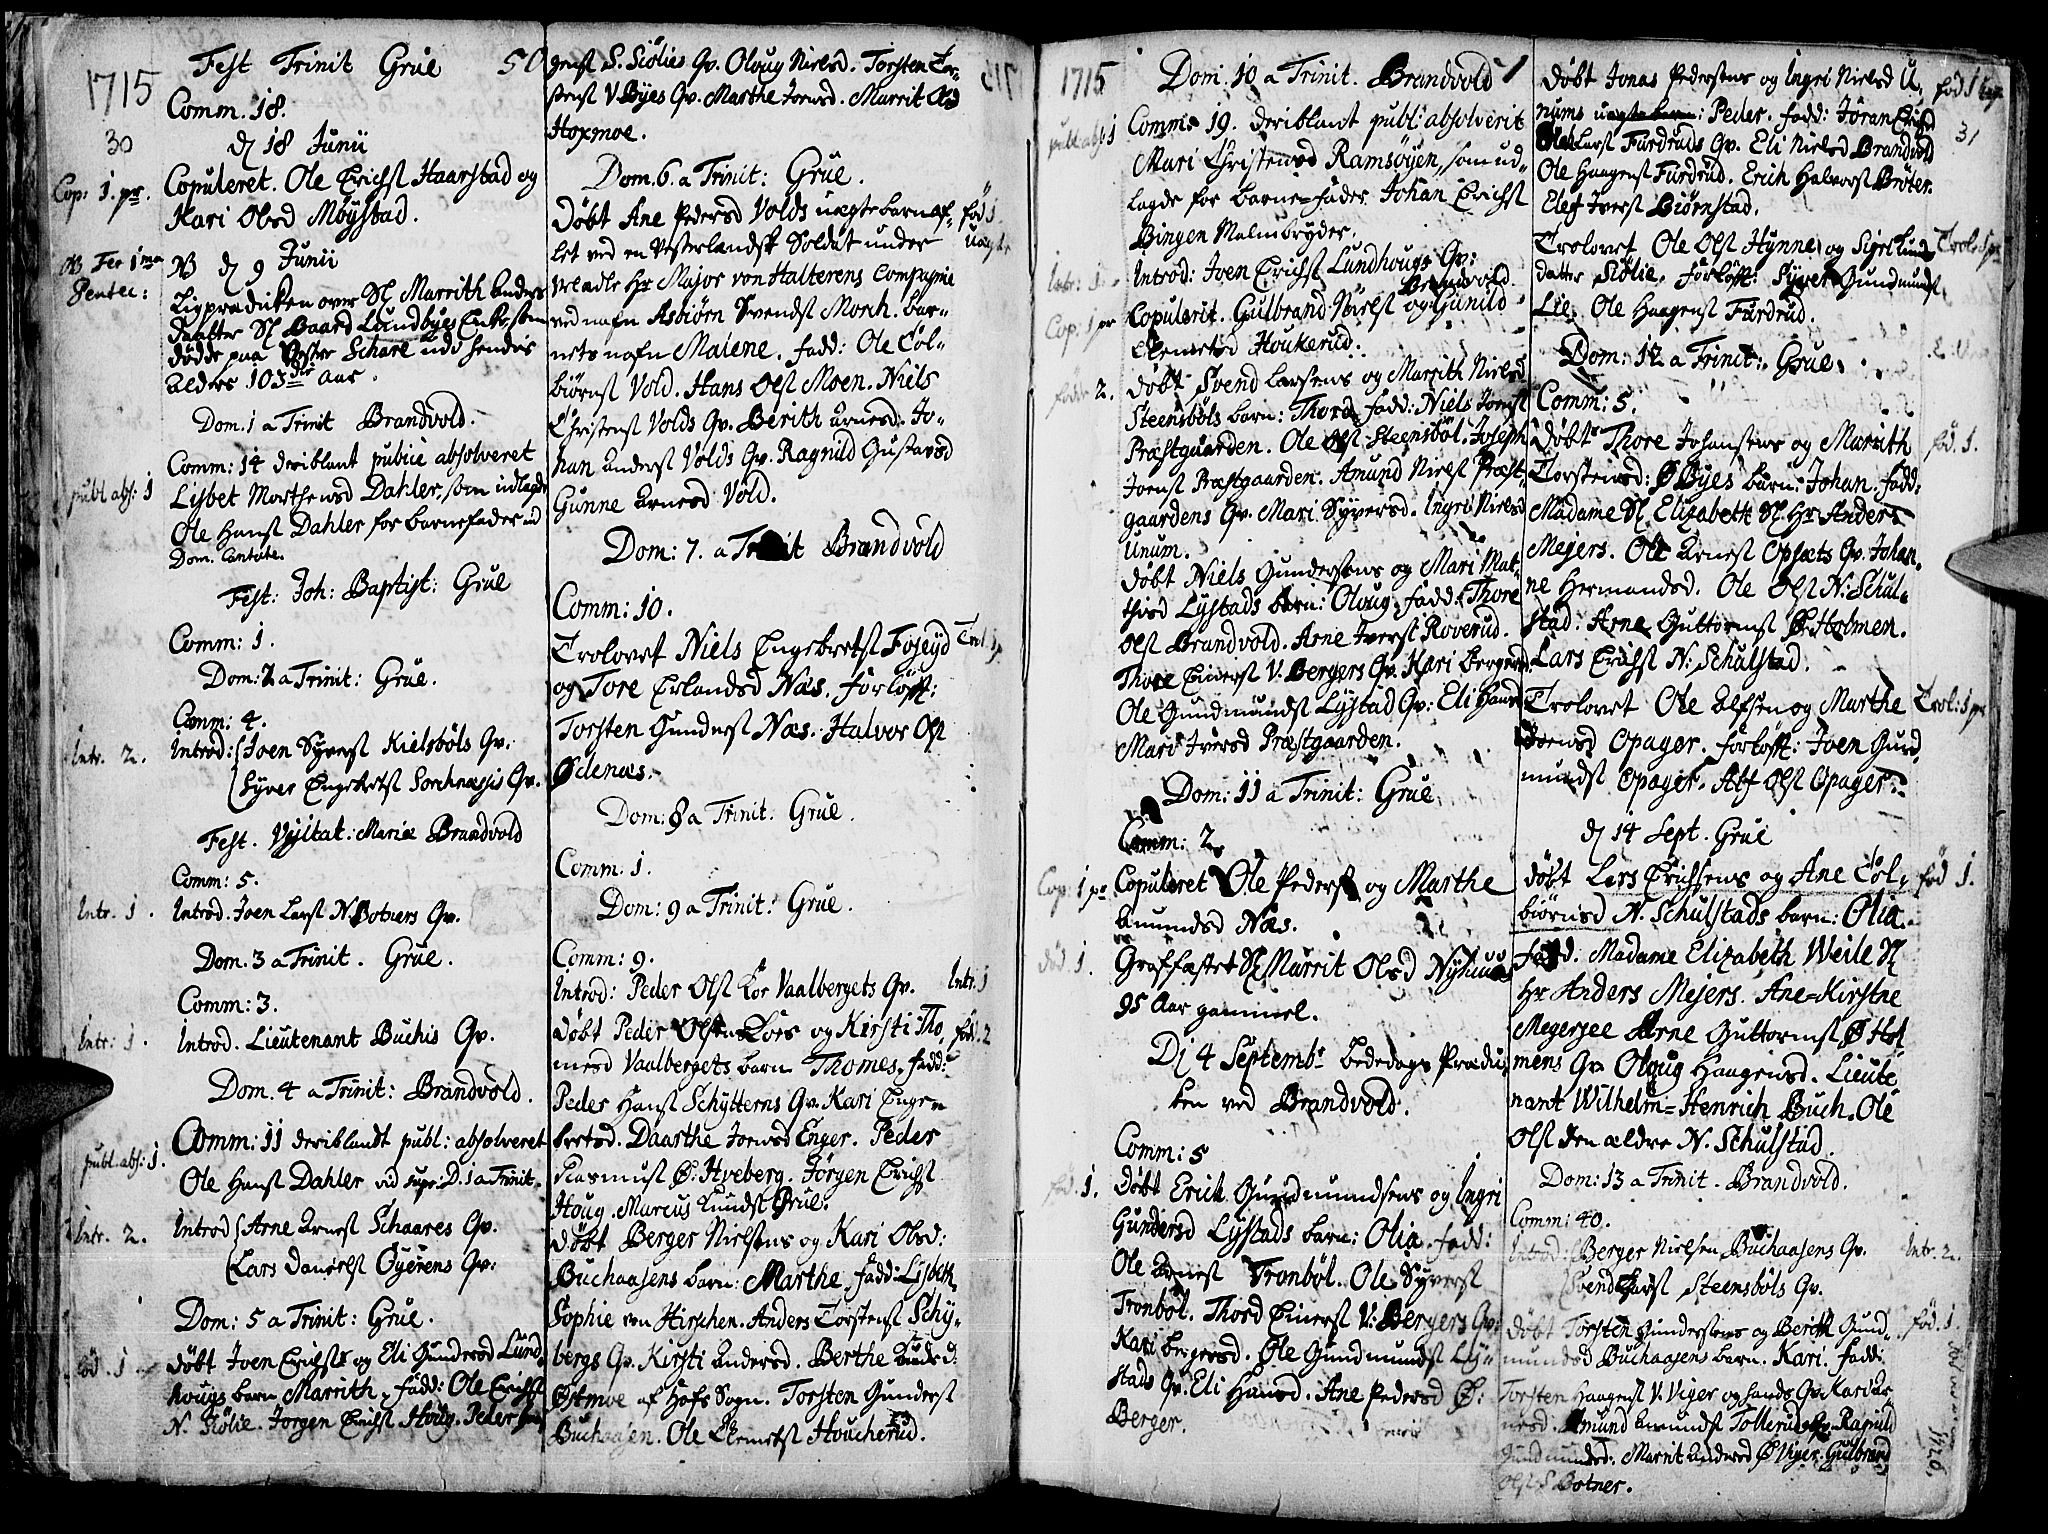 1715
30
Fest Trinit Grue 50
Comm. 18.
d 18 Junii
Cop: 1 pr.
Copuleret. Ole Erichs Haarstad og
Kari Olsd Møystad.
NB Fer 1ma
Pentec:
NB d 9 Junii
Ligprædicken over Sl Marrith Anders
Daatter Sl Baard Lundbyes Enke som
døde paa Vester Schare udi hendes
alders 103die aar.
Dom. 1 a Trinit Brandvold.
publ abs: 1
Comm: 14 deriblant publice absolveret
Lisbet Morthensd Dahler, som udlagde
Ole Hanss Dahler for barnefader ud
Dom. Cantate.
Fest: Joh: Baptist: Grue
Comm: 1.
Dom: 2 a Trinit: Grue.
Comm: 4.
Intr. 2.
Introd: Joen Syvers Kielsböls Qv.
Syver Engebrets Sorchnessis Qv.
Fest. Visitat: Mariæ Brandvold
Comm: 5.
Intr. 1.
Introd. Joen Lars N Botners Qv.
Dom. 3 a Trinit. Grue.
Comm: 3.
Intr: 1.
Introd. Lieutenant Buchis Qv.
Dom. 4 a Trinit: Brandvold.
publ. abs: 1.
Comm: 11 deriblandt publ: absolveret
Ole Hans Dahler vid supr: D. 1 a Trinit.
Intr. 2.
Introd Arne Arnes Schaares Qv.
Lars Daniels Öyerens Qv:
Dom: 5 a Trinit: Grue.
föd. 1
döbt Joen Erichss og Eli Gundersd Lund-
hougs barn Marrith, fadd: Ole Erichs
N. Siölie. Jorgen Erichs Houg. Peder
gens S. Siölies Qv. Oloug Nielsd. Torsten Tor-
stens V Byes Qv. Marthe Joensd. Marrit Olsd
Hoxmoe.
Dom. 6. a Trinit: Grue.
föd 1.
uægte
Döbt Ane Pedersd Volds uægte barn af-
let ved en Vesterlandsk Soldat under
Velædle Hr Major von Halterens Compagnie
ved nafn Asbiörn Svends Morch. bar-
nets nafn Malene. fadd: Ole Col-
biörns Vold. Hans Ols Moen. Niels
Christens Volds Qv. Berith Arnesd. Jo-
han Anders Volds Qv. Ragnild Gustavsd
Gunne Arnesd Vold.
Dom: 7. a Trinit Brandvold
Comm: 10.
Trol 1 p
Trolovet Niels Engebrets Foseyd
og Tore Erlandsd Næs. forlöfft:
Torsten Gunders Næs. Halvor Ols
Ödenæs.
Dom: 8 a Trinit: Grue.
Comm: 1.
Dom: 9 a Trinit: Grue.
Comm: 9.
Intr. 1
Introd: Peder Ols Kör Vaalbergets Qv.
föd. 2
döbt Peder Olsen Körs og Kirsti Tho-
mesd Vaalbergets barn Thomes, fadd:
Peder Hans Schytterns Qv. Kari Enge-
bretsd. Daarthe Joensd Enger. Peder
Rasmus Ö. Hveberg. Jörgen Erichs
Houg. Marcus Lunds Grue.
döbt Berger Nielsens og Kari Olsd:
Buchaasens barn: Marthe, fadd: Lisbeth
Sophie von Hirschen. Anders Torstens Schy-
bergs Qv. Kirsti Andersd. Berthe Amundsd.
Östmoe af Hofs Sogn. Torsten Gunders
Buchaasen. Ole Clemets Houcherud.
1715
Dom. 10 a Trinit. Brandvold
publ abs: 1
Comm: 19. deriblant publ: absolverit
Mari Christensd Ramsöyen, som ud-
lagde for barne-fader Johan Erichs
Bingen Malmbryder.
Intr: 1.
Introd: Joen Erichs Lundhougs Qv:
Brandvold.
Cop. 1 pr
Copulerit. Gulbrand Niels og Gunild
Clemetsd Houkerud.
födde 2.
döbt Svend Larsens og Marrith Nielsd
Steensböls barn: Thord. fadd: Niels Joens
Præstgaarden. Ole Ols Steensböl. Joseph
Joens Præstgaarden. Amund Niels Præst-
gaardens Qv. Mari Syversd. Ingri Nielsd
Unum.
döbt Niels Gundersens og Mari Mat-
thisd Lystads barn: Oloug, fadd: Thore
Ols Brandvold. Arne Ivers Roverud.
Thore Einers V. Bergers Qv. Kari Bergersd.
Ole Gundmunds Lystad Qv: Eli Hansd
Mari Iversd Præstgaarden.
Dom: 11 a Trinit: Grue.
Comm: 2.
Cop: 1 pr
Copuleret Ole Peders og Marthe
Amundsd Næs.
död. 1.
Graffæstet Sl Marrit Olsd Nyhuus
95 Aar gammel.
Dj 4 Septembr bededags Prædi-
ken ved Brandvold.
Comm: 5
föd. 1.
Döbt Erich Gundmundsens og Ingri
Gundersd Lystads barn: Olia. fadd:
Ole Arnes Tronböl. Ole Syvers
Tronböl. Thord Einers V. Bergers Qv:
Kari Bergersd. Ole Gundmunds Ly-
stads Qv: Eli Hansd. Ane Pedersd Ö:
Berger.
föd 1
31
döbt Jonas Pedersens og Ingri Nielsd U-
nums uægte barn: Peder. fadd: Jöran
Lars Furdruds Qv. Eli Nielsd Brandvold
Ole Haagens Furdrud. Erich Halvors Bröter.
Elef Ivers Biörnstad.
Trol. 1 pr
Trolovet Ole Ols Hynne og Sigri Lunds
datter Siölie. forlöfft: Syver Gundmunds
Lie. Ole Haagens Furdrud.
Dom: 12 a Trinit: Grue.
Comm: 5.
föd. 1.
Döbt Thore Johansens og Marrith
Torstensd: Ö Byes barn: Johan. fadd:
Madame Sl Elizabeth Sl. Hr Anders
Mejers. Ole Arnes Opsets Qv. Johan-
ne Hermandsd. Ole Ols N: Schul-
stad. Arne Guttorms Ö Holmen.
Lars Erichs N: Schulstad.
Trol: 1 pr
Trolovet Ole Alfsen og Marthe
Joensd Opager. forlöfft: Joen Gud-
munds Opager. Alf Ols Opager.
d 14 Sept. Grue
föd 1.
döbt Lars Erichsens og Ane Col-
biörnsd N. Schulstads barn: Olia.
fadd. Madame Elizabeth Weile Sl
Hr Anders Mejers. Ane-Kirstne
Megersee Arne Guttorms Ö Hol-
mens Qv Oloug Haagensd. Lieute
nant Wilhelm-Henrich Buch. Ole
Ols den ældre N. Schulstad.
Dom: 13 a Trinit. Brandvold.
Comm: 40.
Intr. 2.
Introd: Berger Nielsen Buchaasens Qv.
Svend Lars Steensböls Qv.
föd. 1.
döbt Torsten Gundersens og Berith Gund-
mundsd Buchaasens barn. Kari. fadd:
Torsten Haagens V. Viger og hands Qv. Kari Ar-
nesd. Amund Amunds Tollerud Qv. Ragnild
Gundmundsd. Marrit Andersd Ö Viger. Gulbrand
Ols S Botner.